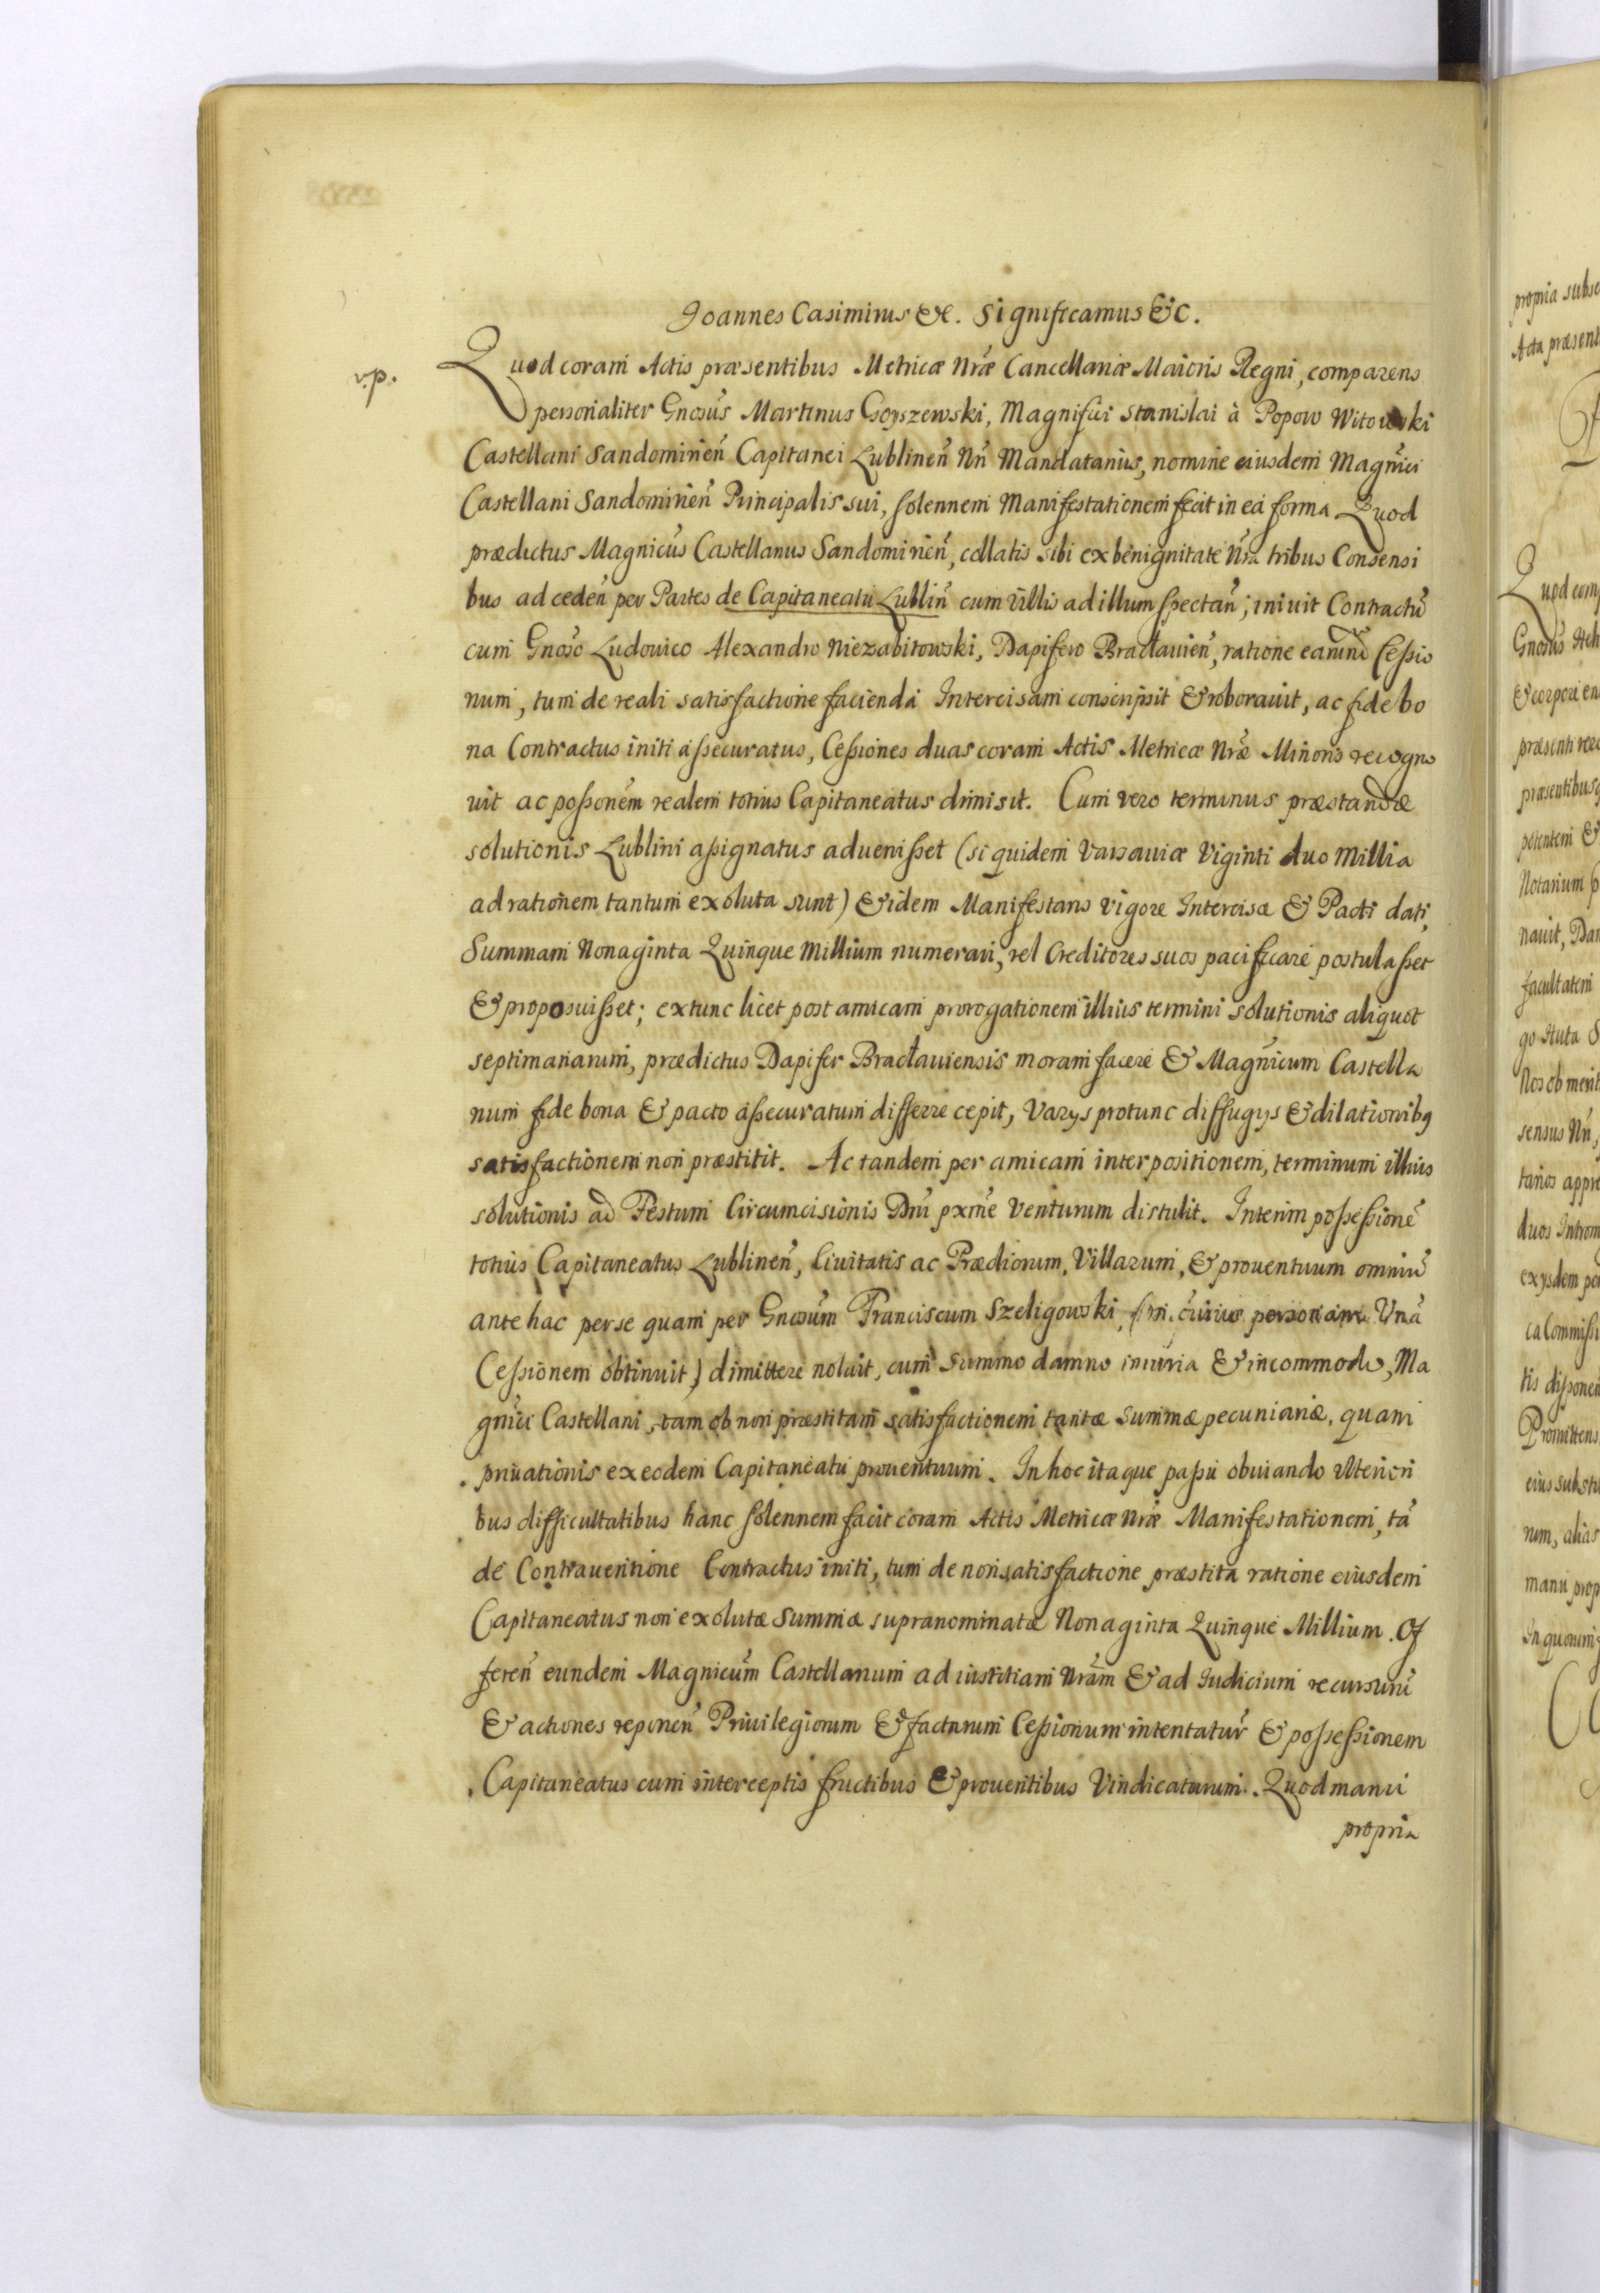 Joannes Casimirus &c. Significamus &c.
v.p.
Quod coram Actis præsentibus Metricæ Nræ Cancellariæ Maioris Regni, comparens
personaliter Gnosus Martinus Goyszewski, Magnifici Stanislai à Popow Witowski
Castellani Sandomirien Capitanei Lublinen Nri Mandatarius, nomine eiusdem Magnici
Castellani Sandomirien Principalis sui, solennem Manifestationem fecit in ea forma Quod
prædictus Magnicus Castellanus Sandomirien, collatis sibi ex benignitate Nra tribus Consensi
bus ad ceden per Partes de Capitaneatu Lublin cum villis ad illum spectan, inivit Contractu
cum Gnoso Ludovico Alexandro Niezabitowski, Dapifero Bracłavien, ratione earund Cessio
num, tum de reali satisfactione facienda Intercisam conscripsit & roboravit, ac fide bo
na Contractus initi assecuratus, Cessiones duas coram Actis Metricæ Nræ Minoris recogno
vit ac possonem realem totius Capitaneatus dimisit. Cum vero terminus præstandæ
solutionis Lublini assignatus advenisset (si quidem Varsaviæ Viginti duo Millia
ad rationem tantum exoluta sunt) & idem Manifestans vigore Intercisæ & Pacti dati,
Summam Nonaginta Quinque Millium numerari, vel Creditores suos pacificare postulasset
& proposuisset; extunc licet post amicam prorogationem illius termini solutionis aliquot
septimanarum, prædictus Dapifer Bracłaviensis moram facere & Magnicum Castella
num fide bona & pacto assecuratum differre cepit, Varys protunc diffugys & dilationibq
satisfactionem non præstitit. Ac tandem per amicam interpositionem, terminum illius
solutionis ad Festum Circumcisionis Dni pxme venturum distulit. Interim possessione
totius Capitaneatus Lublinen, Civitatis ac Prædiorum, Villarum, & proventuum omniu
ante hac per se quam per Gnosum Franciscum Szeligowski, (in cuius personam Una
Cessionem obtinuit) dimittere noluit, cum summo damno iniuria & incommodo, Ma
gnici Castellani, tam ob non præstitam satisfactionem tantæ summæ pecuniariæ, quam
privationis ex eodem Capitaneatu proventuum. In hoc itaque passu obviando ulteriori
bus difficultatibus hanc solennem facit coram Actis Metricæ Nræ Manifestationem, ta
de Contraventione Contractus initi, tum de non satisfactione præstita ratione eiusdem
Capitaneatus non exolutæ summæ supranominatæ Nonaginta Quinque Millium. Of
feren eundem Magnicum Castellanum ad iustitiam Nram & ad Iudicium recursuru
& actiones reponen Privilegiorum & factarum Cessionum intentatur & possessionem
Capitaneatus cum interceptis fructibus & proventibus Vindicaturum. Quod manu
propria